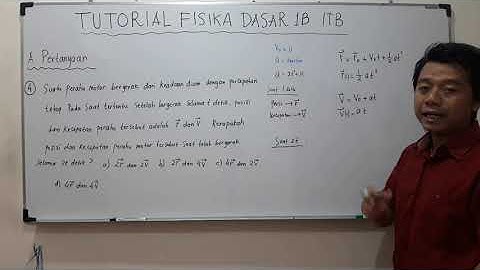 TUTORIAL FISIKA DASAR 1B ITB
A Pertanyaan
④ Suatu perahu motor bergerak dari keadaan diam dengan percepatan
tetap. Pada saat tertentu setelah bergerak selama t detik, posisi
dan kecepatan perahu tersebut adalah r⃗ dan v⃗. Berapakah
posisi dan kecepatan perahu motor tersebut saat telah bergerak
selama 2t detik? a) 2r⃗ dan 2v⃗ b) 2r⃗ dan 4v⃗ c) 4r⃗ dan 2v⃗
d) 4r⃗ dan 4v⃗
V₀ = 0
Saat t detik
posisi → r⃗
kecepatan → v⃗
Saat 2t
r⃗ = r⃗₀ + V₀t + ½at²
r⃗(t) = ½at²
v⃗ = v⃗₀ + at
v⃗(t) = at